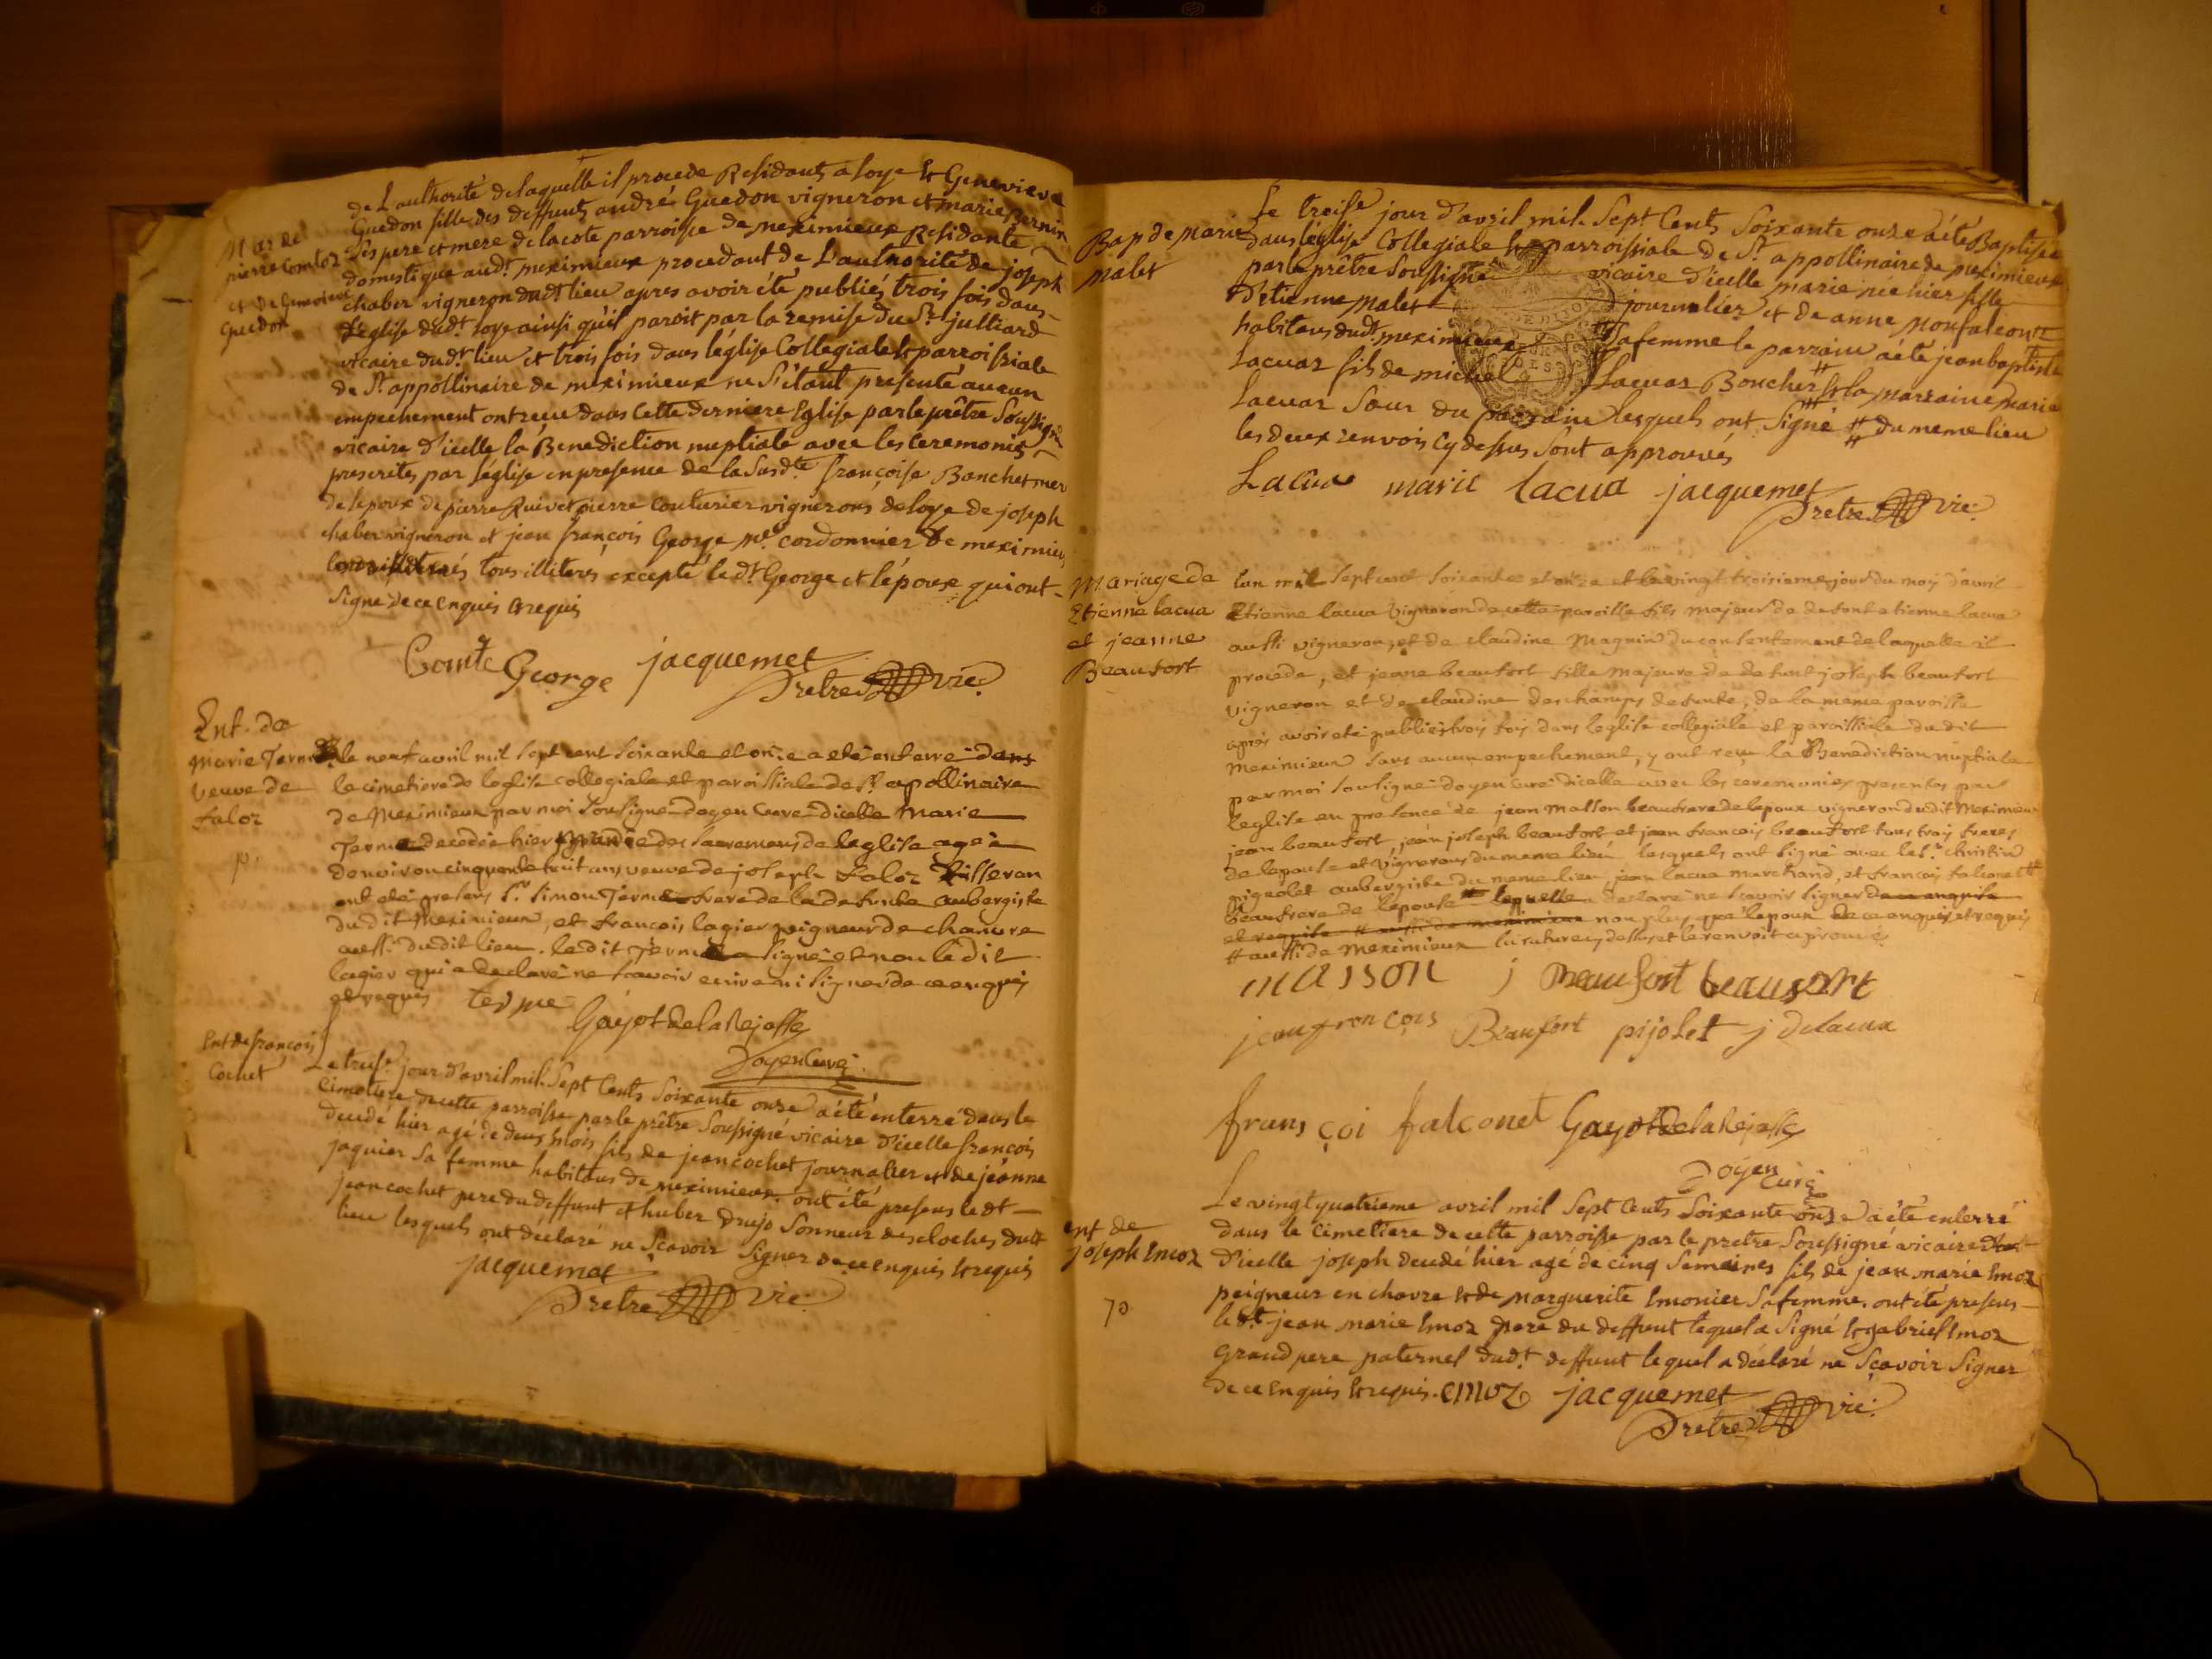 Mar de
pierre Comtoz
et de Genevieve
Guedon
de L'authorité de laquelle il procede Residants a loye et Genevieve
Guedon fille des deffunts andré Guedon vigneron et marie Bernin
ses pere et mere de la cote parroisse de meximieux Residante
domestique aud.t meximieux procedant de L'authorité de joseph
chaber vigneron dud.t lieu apres avoir été publiés trois fois dans
L'eglise dud.t loye ainsi qu'il paroit par la remise du S.r julliard
vicaire dud.t lieu et trois fois dans l'église Collegiale et parroissiale
de S.t appollinaire de meximieux ne S'étant presenté aucun
empechement ont reçu dans Cette derniere Eglise par le prêtre Soussigné
vicaire d'icelle la Benediction nuptiale avec les Ceremonies
prescrites par l'église en presence de la Susd.te françoise Banchet mere
de lepoux de pierre Quivet pierre Couturier vignerons de loye de joseph
chaber vigneron et jean françois George m.e Cordonnier de meximieux
tous illiteres excepté le d.t George et l'époux qui ont
Signé de ce enquis et requis
Comte George jacquemet
Pretre vic.
Ent. de
marie Terme
veuve de
faloz
p.
le neuf avril mil sept cent soixante et onze a eté enterré dans
le cimetiere de leglise collegiale et paroissiale de S.t apollinaire
de Meximieux par moi soussigné doyen curé dicelle Marie
Terme decedée hier munie des sacremens de leglise agée
denviron cinquante huit ans veuve de joseph faloz tisseran
ont eté presens S.r simon Terme frere de la defunte aubergiste
dudit Meximieux, et francois lagier peigneur de chanvre
aussi dudit lieu. ledit Terme a signé et non le dit
lagier qui a declaré ne scavoir ecrire ni signer de ce enquis
et requis terme
Gayot de la Rejasse
Doyen Curé
Ent de françois
Cochet
Le treis.e jour d'avril mil Sept Cents Soixante onze a été enterré dans le
Cimetiere de cette parroisse par le prêtre Soussigné vicaire d'icelle françois
decedé hier agé de deux mois fils de jean cochet journalier et de jeanne
jaquier Sa femme habitans de meximieux. ont été presens le d.t
jean cochet pere du deffunt et huber Drujo Sonneur des cloches dud.t
lieu lesquels ont déclaré ne Sçavoir Signer de ce enquis et requis
jacquemet
Pretre vic.
Bap de marie
malet
Le treise jour d'avril mil Sept Cents Soixante onze a été Baptisée
dans l'église Collegiale et parroissiale de S.t appollinaire de meximieux
par le prêtre Soussigné vicaire d'icelle marie née hier fille
d'étienne malet journalier et de anne monfalcont
habitans dud.t meximieux Sa femme le parrain a été jean baptiste
Lacuaz fils de michel Lacuaz Boucher # et la marraine marie
Lacuaz Sœur du parrain lesquels ont Signé # du meme lieu
les deux renvois Cy dessus Sont approuvés
Lacua marie lacua jacquemet
Pretre vic.
Mariage de
Etienne lacua
et jeanne
Beaufort
lan mil sept cent soixante et onze et le vingt troisieme jour du mois d'avril
Etienne lacua vigneron de cette paroisse fils majeur de defunt etienne lacua
aussi vigneron, et de claudine Magnin du consentement de laquelle il
procede, et jeanne beaufort fille majeure de defunt joseph beaufort
vigneron et de claudine deschamps defunte, de la meme paroisse
apres avoir eté publiés trois fois dans leglise collegiale et paroissiale dudit
Meximieux sans aucun empechement, y ont reçu la Benediction nuptiale
par moi soussigné doyen curé dicelle avec les ceremonies presentes par
leglise en presence de jean Masson beaufrere de lepoux vigneron dudit Meximieux
jean beaufort, jean joseph beaufort et jean francois beaufort tous trois freres
de lepouse et vignerons du meme lieu lesquels ont signé avec le S.r christin
pigeolet aubergiste du meme lieu, jean lacua marchand, et francois falconet #
beaufrere de lepouse laquelle a declaré ne scavoir signer de ce enquise
et requise # aussi de meximieux non plus que lepoux de ce enquis et requis
# aussi de Meximieux la rature cy dessus et le renvoit aprouvé
masson j Beaufort beaufort
jean francois Beaufort pijolet j delacua
françoi falconet Gayot de la Rejasse
Doyen Curé
ent de
joseph Emoz
70
Le vingt quatrieme avril mil Sept Cents Soixante onze a été enterré
dans le Cimetiere de cette parroisse par le pretre Soussigné vicaire
d'icelle joseph decedé hier agé de cinq Semaines fils de jean marie Emoz
peigneur en chavre et de marguerite Emonier Sa femme. ont été presens
le d.t jean marie Emoz pere du deffunt lequel a Signé et gabriel Emoz
Grand pere paternel dud.t deffunt lequel a déclaré ne Sçavoir Signer
de ce enquis et requis. emoz jacquemet
Pretre vic.